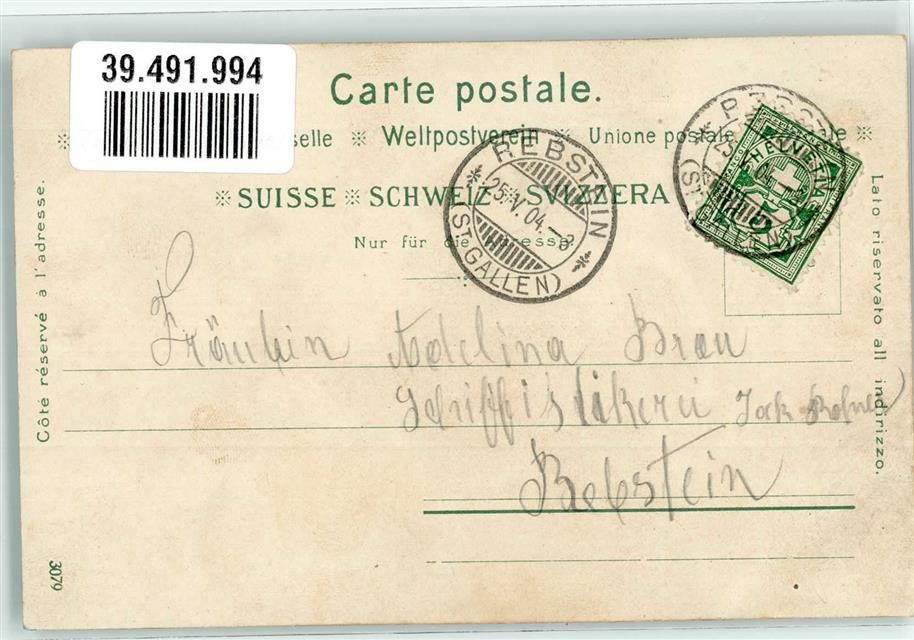 39.491.994
Carte postale.
selle ※ Weltpostverein ※ Unione postale
※ SUISSE ※ SCHWEIZ SVIZZERA
Nur für die Adresse.
REBSTEIN
25.V.04.
(ST. GALLEN)
HELVETIA
Côte réservé à l'adresse.
Lato riservato all indirizzo.
Fräulein Adelina
Schifflistikerei
Rebstein
3079